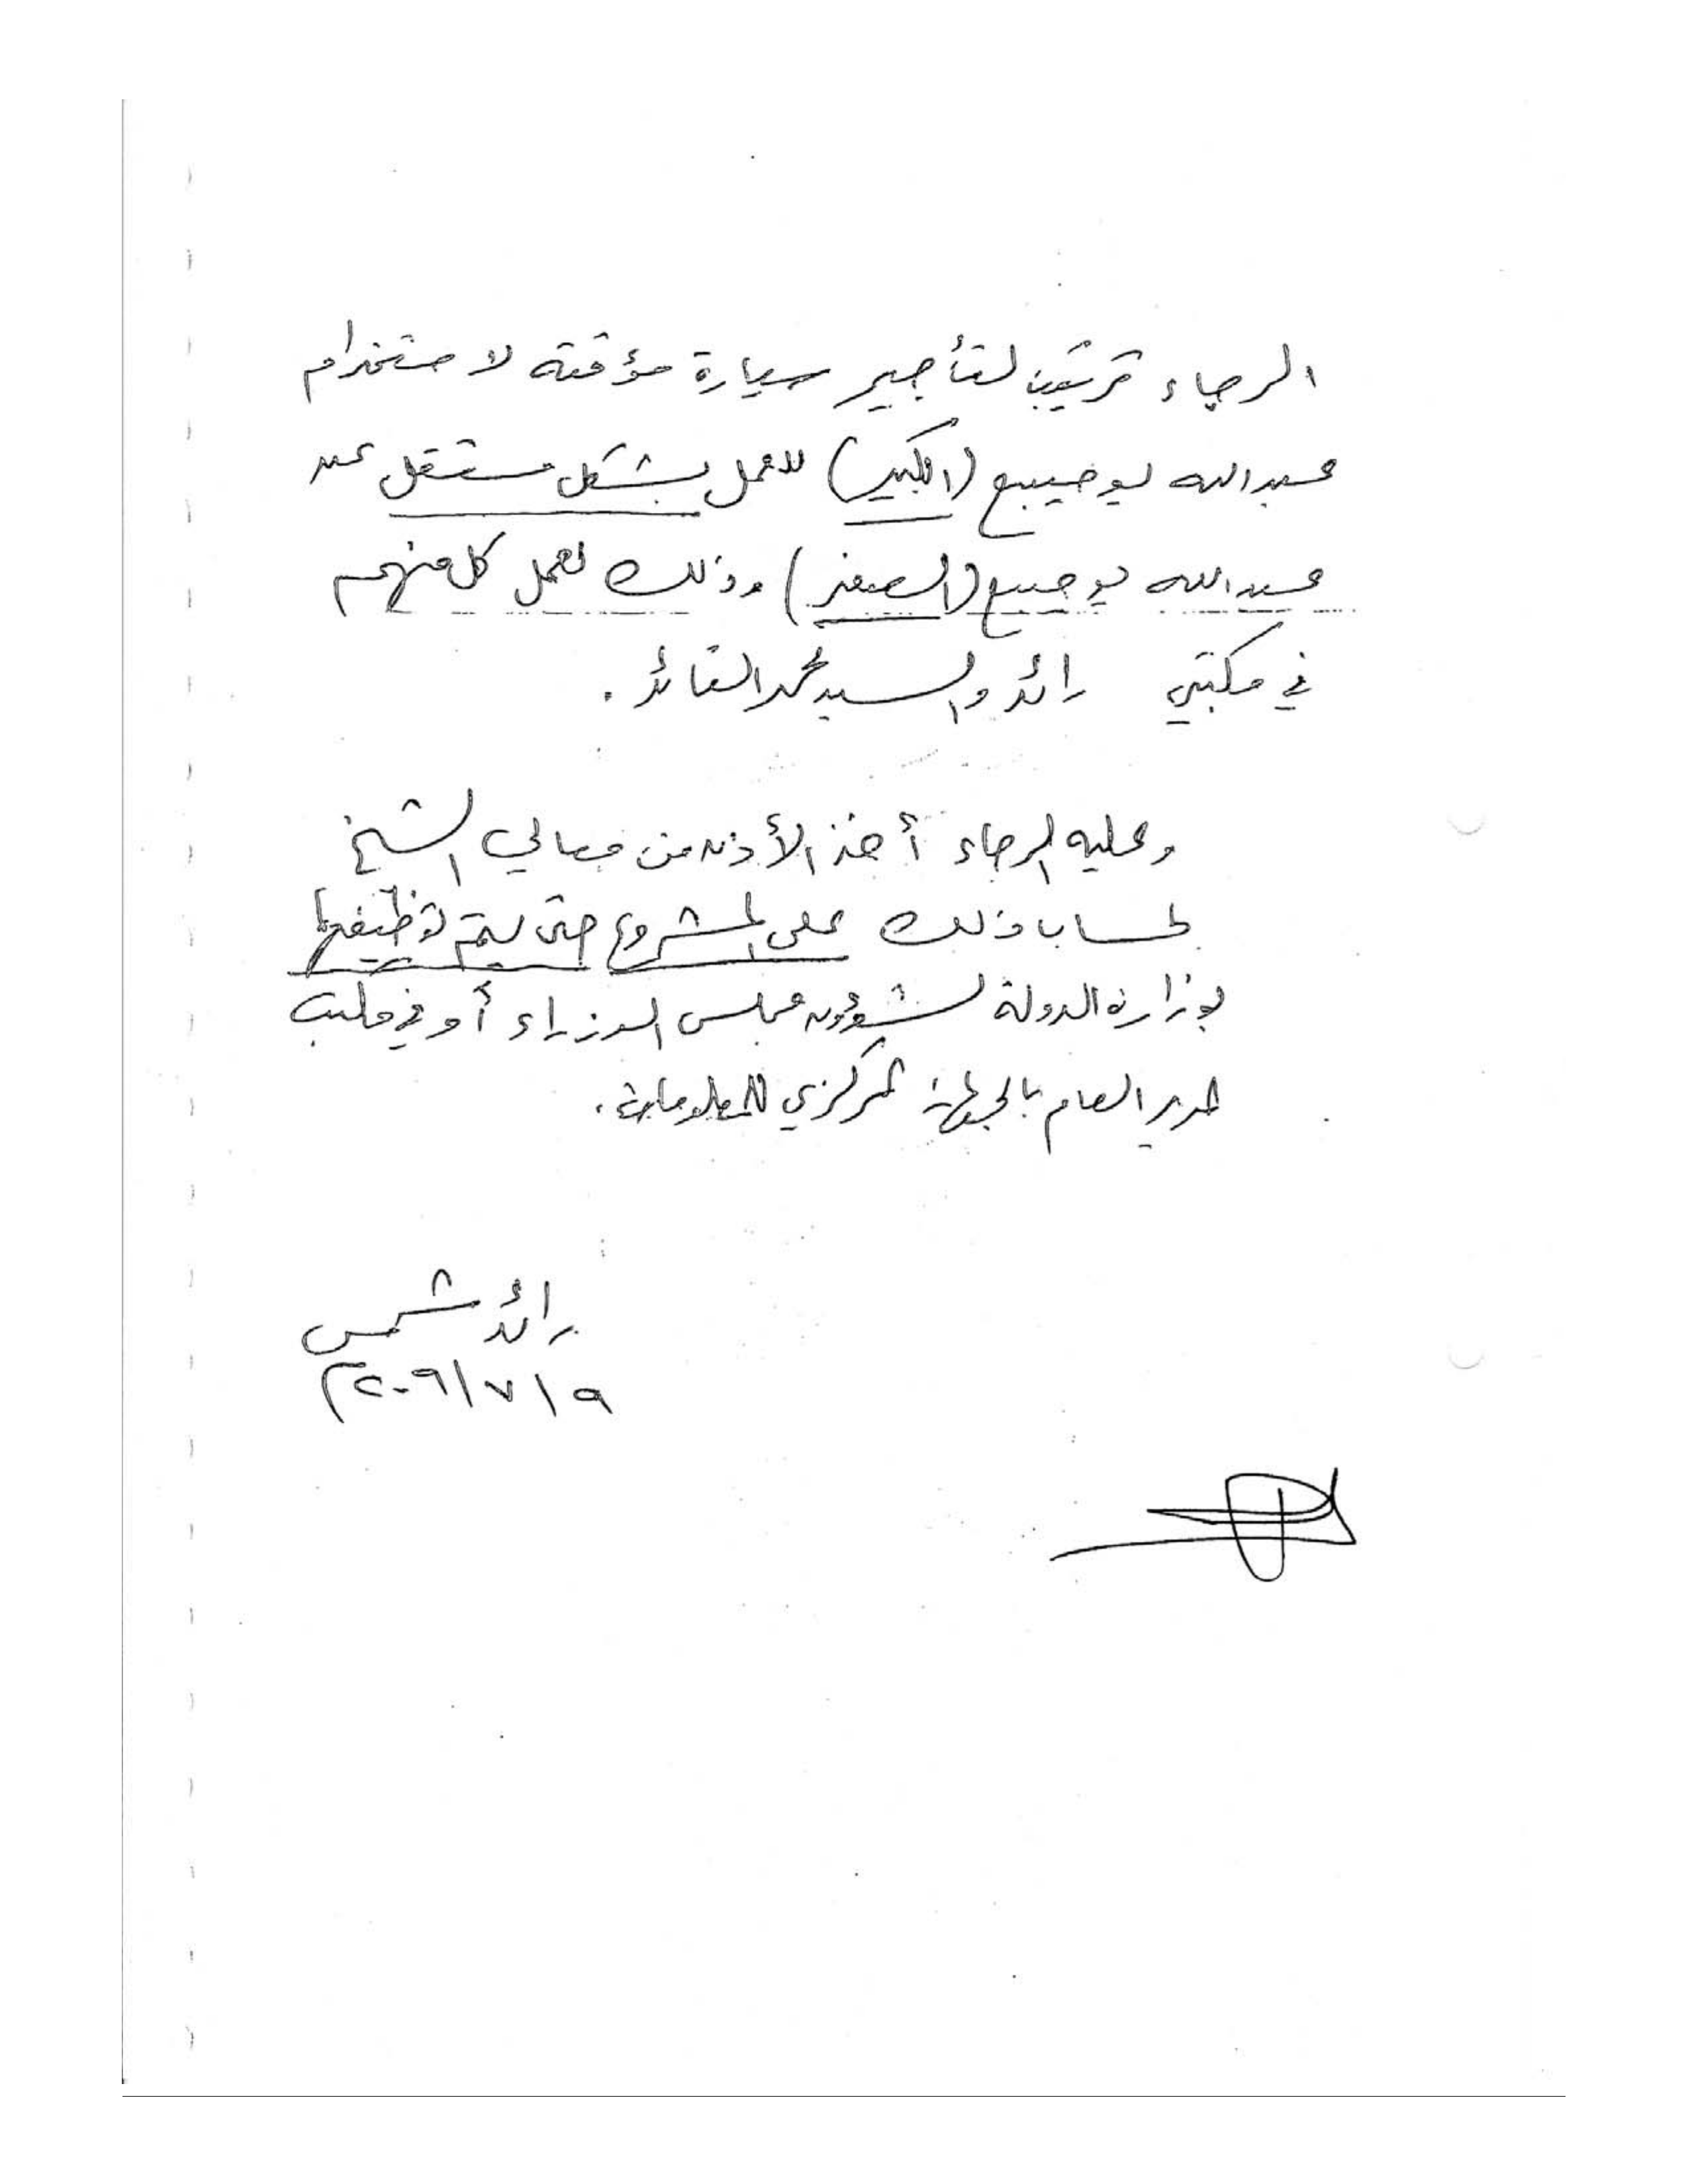 الرجاء ترتيب لتأجير سيارة مؤقتة لاستخدام
عبدالله بوصيبع (الكبير) للعمل بشكل مستقل عن
عبدالله بوصيبع (الصغير) وذلك لعمل كل منهم
في مكتبي رائد والسيد محمد القائد.
وعليه الرجاء أخذ الأذن من معالي الشيخ
لحساب ذلك على المشروع حتى يتم توظيفهما
بوزارة الدولة لشؤون مجلس الوزراء أو في مكتب
المدير العام بالجهاز المركزي للمعلومات.
رائد شمس
٩/٧/٢٠٠٩م